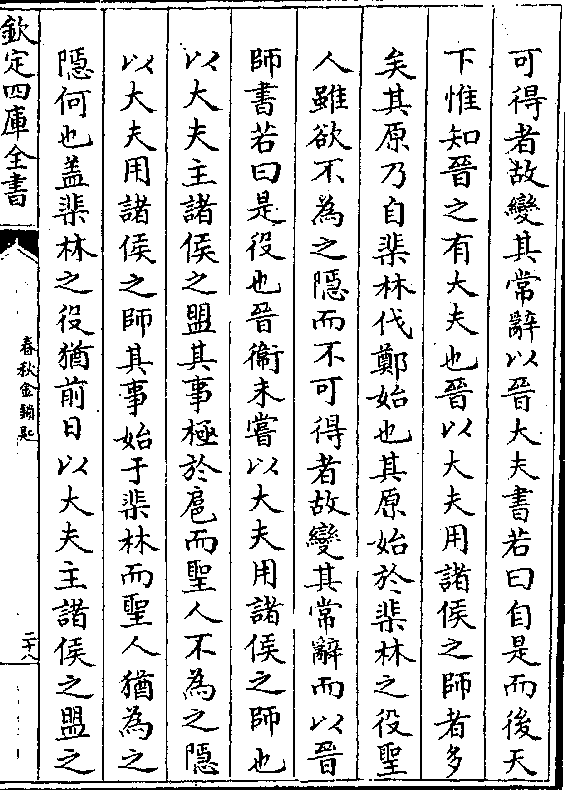 可得者故變其常辭以晉大夫書若曰自是而後天
下惟知晉之有大夫也晉以大夫用諸侯之師者多
矣其原乃自棐林伐鄭始也其原始於棐林之役聖
人雖欲不為之隱而不可得者故變其常辭而以晉
師書若曰是役也晉衞未嘗以大夫用諸侯之師也
以大夫主諸侯之盟其事極於扈而聖人不為之隱
以大夫用諸侯之師其事始于棐林而聖人猶為之
隱何也盖棐林之役猶前日以大夫主諸侯之盟之
欽定四庫全書
春秋金鎖匙
二十八